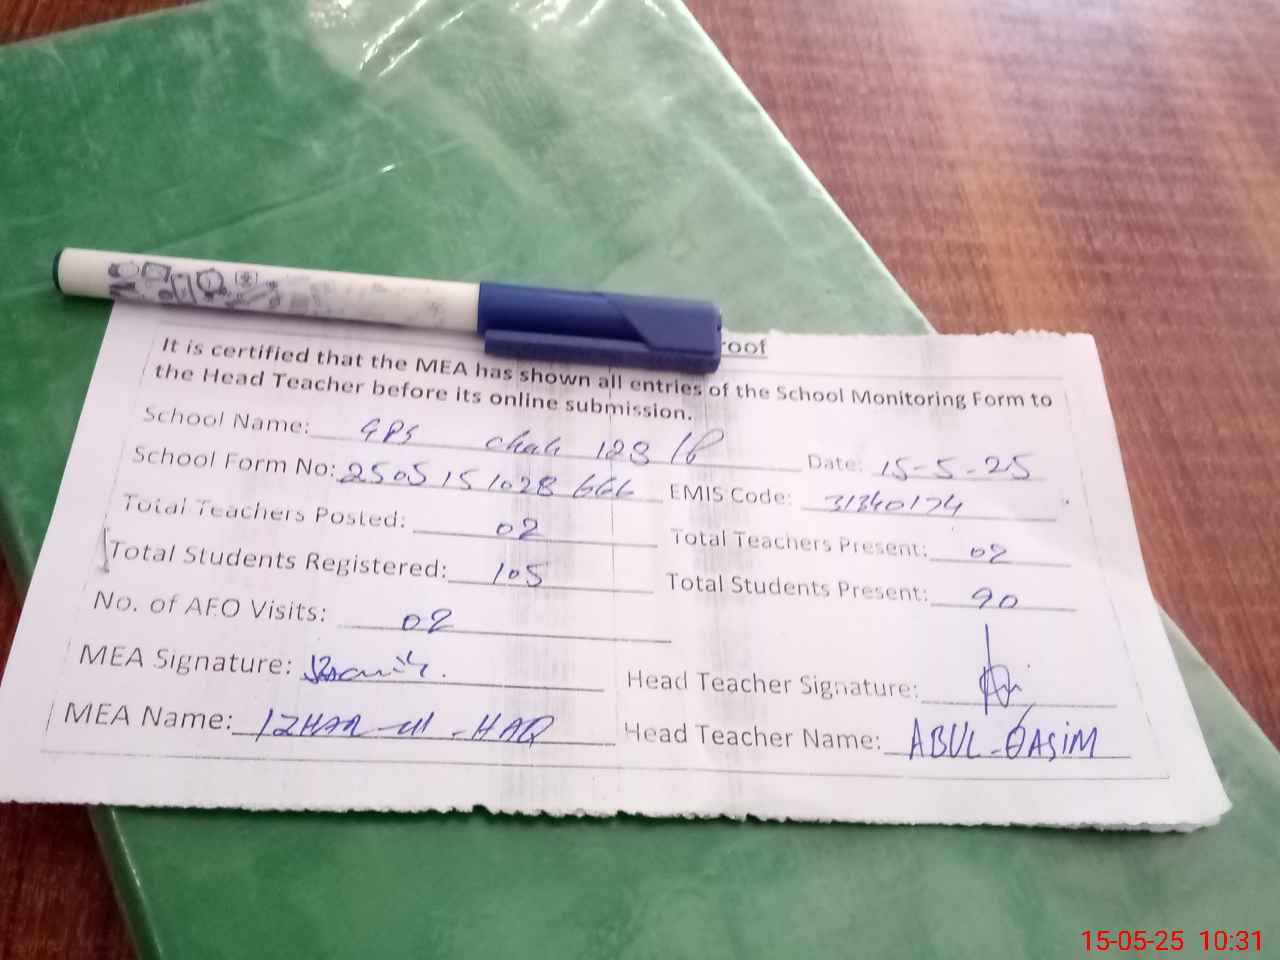 roof
It is certified that the MEA has shown all entries of the School Monitoring Form to
the Head Teacher before its online submission.
School Name: GPS chak 128 Date: 15-5-25
School Form No: 2505151028666 EMIS Code: 31340174
Total Teachers Posted: 02 Total Teachers Present: 02
Total Students Registered: 105 Total Students Present: 90
No. of AEO Visits: 02
MEA Signature: Head Teacher Signature:
MEA Name: IZHAR-ul-HAQ Head Teacher Name: ABUL-QASIM
15-05-25 10:31